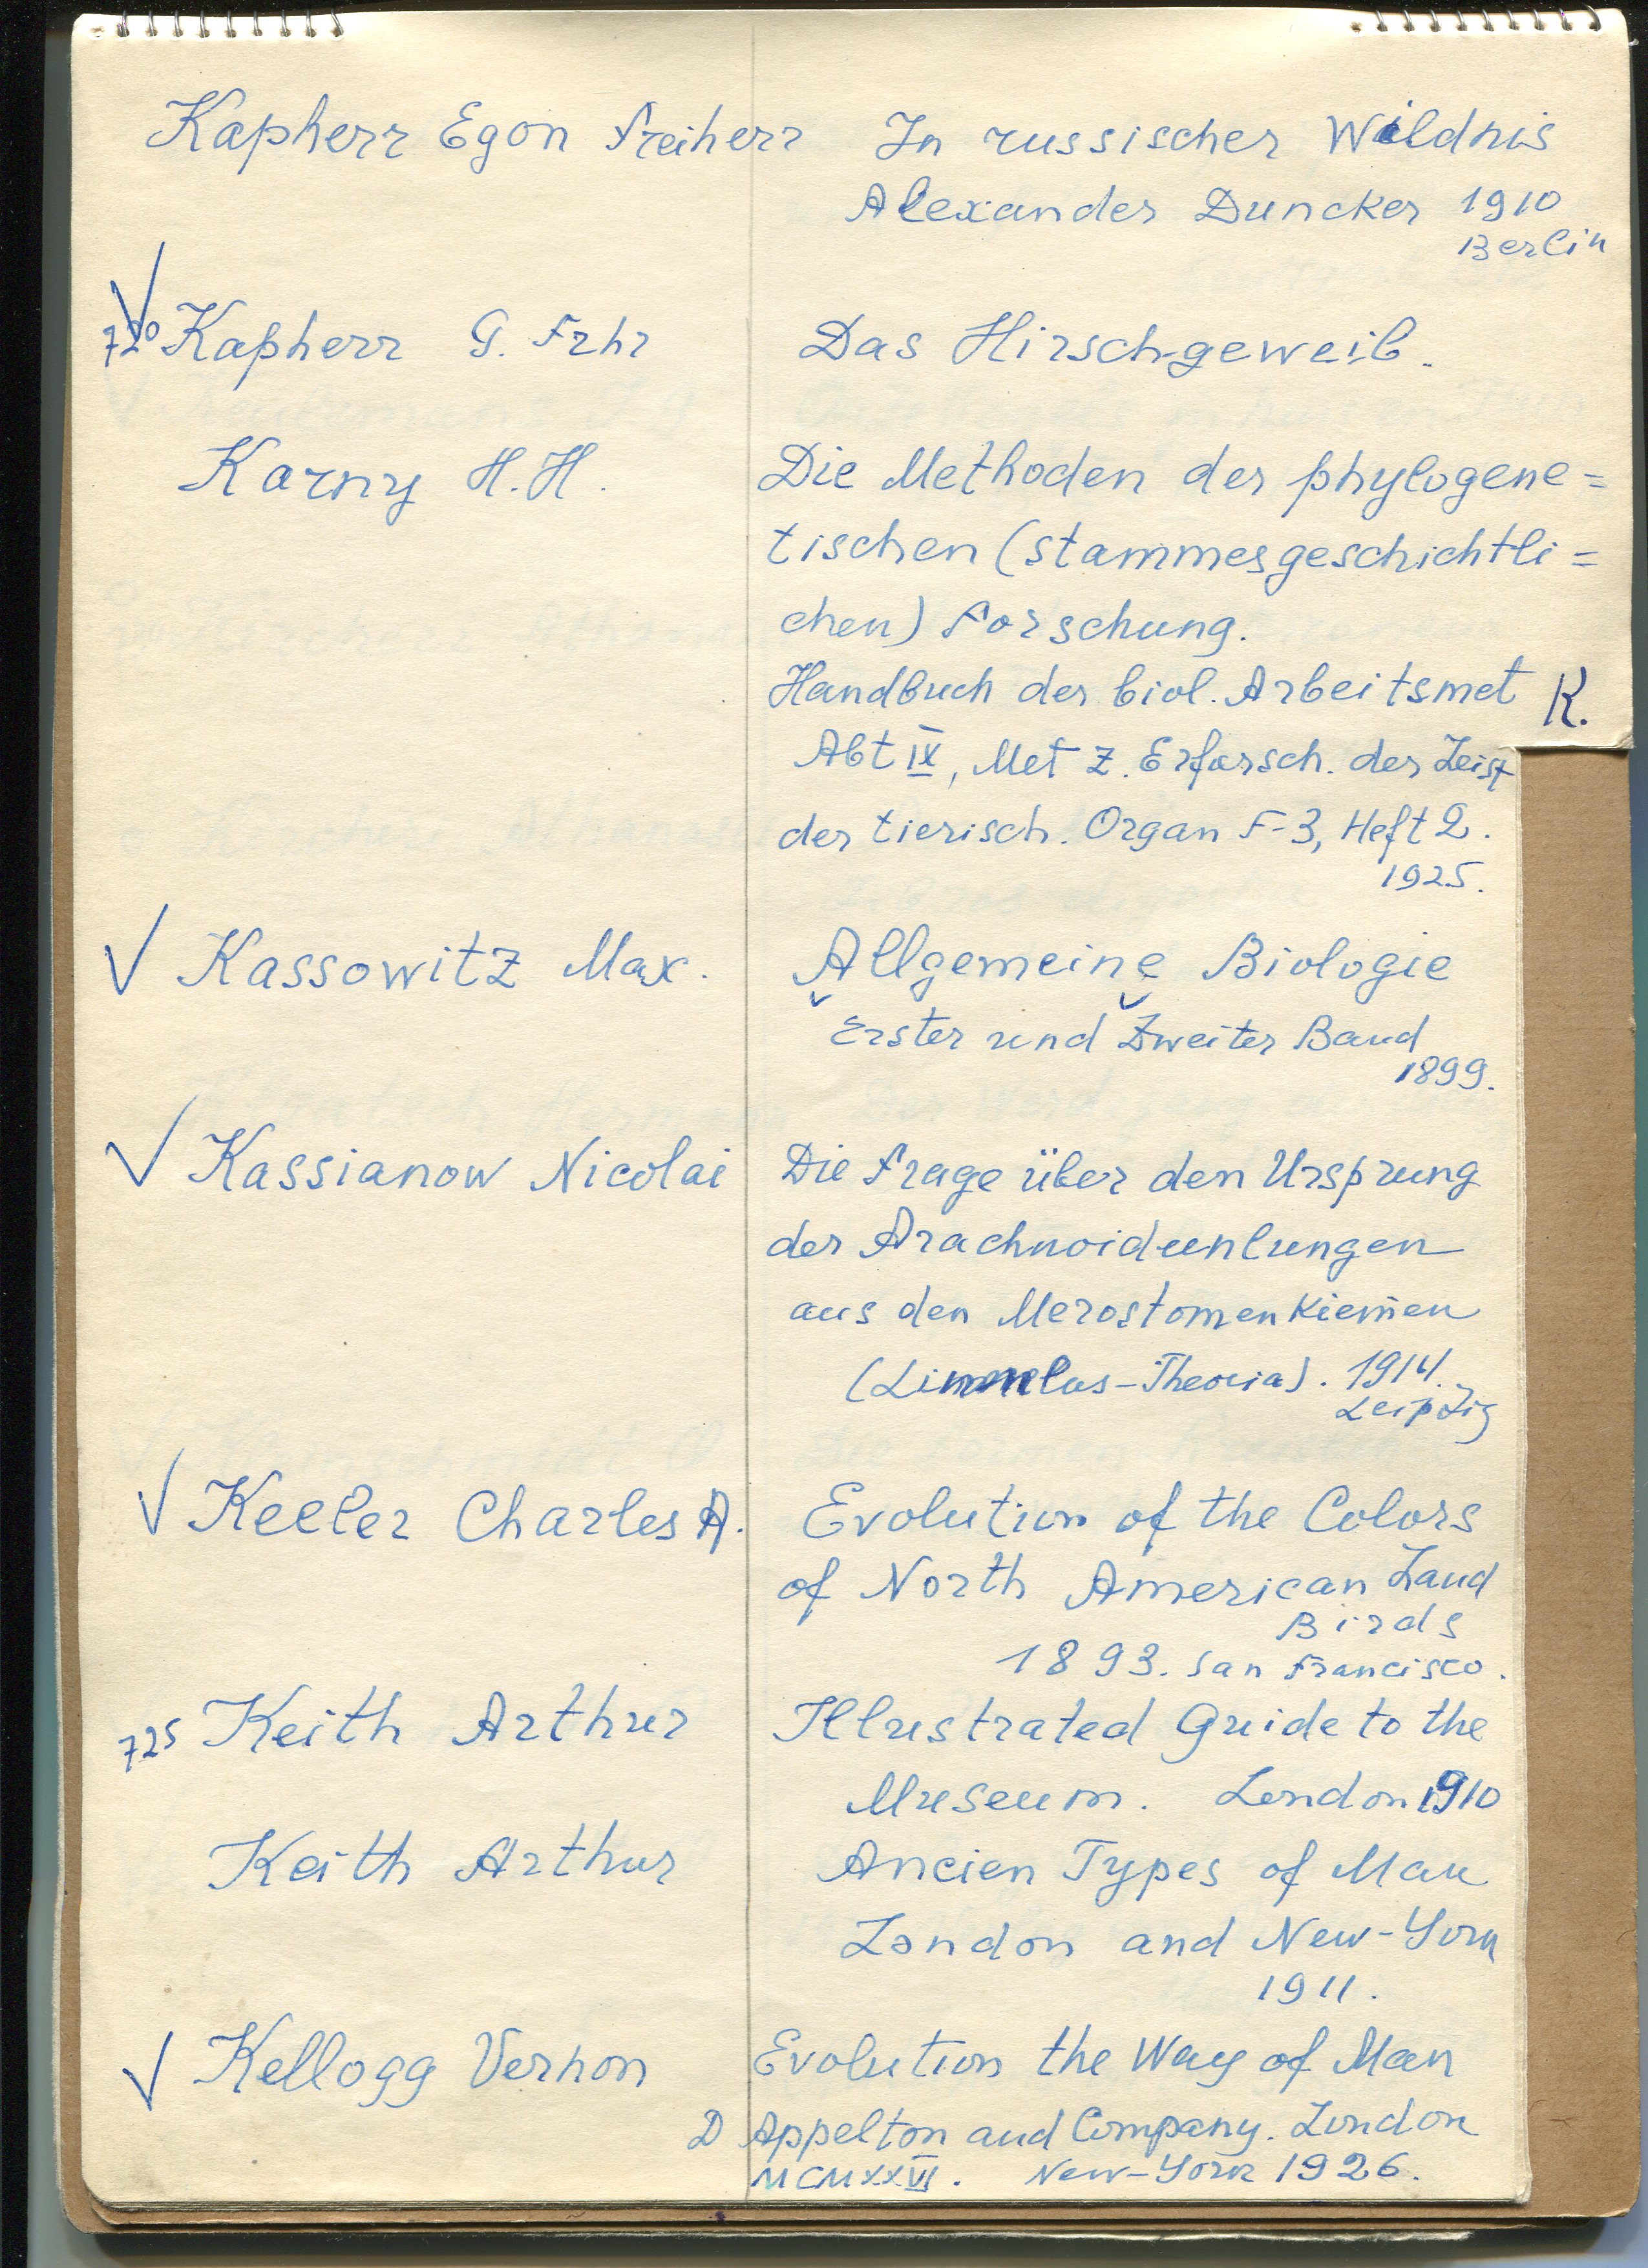 Kapherr Egon Freiherr In russischer Wildnis
Alexander Duncker 1910
Berlin
720 Kapherr G. Frhr Das Hirschgeweib.
Karny H.H. Die Methoden der phylogene=
tischen (stammesgeschichtli=
chen) Forschung.
Handbuch der biol. Arbeitsmet
K.
Abt IX, Met Z. Erforsch. der Leist
der tierisch. Organ F-3, Heft 2.
1925.
√ Kassowitz Max. Allgemeine Biologie
Erster und Zweiter Band
1899.
√ Kassianow Nicolai Die Frage über den Ursprung
der Arachnoideenlungen
aus den Merostomenkiemen
(Limulus-Theoria). 1914.
Leipzig
√ Keeler Charles A. Evolution of the Colors
of North American Land
Birds
1893. San Francisco.
725 Keith Arthur Illustrated Guide to the
Museum. London 1910
Keith Arthur Ancien Types of Man
London and New-York
1911.
√ Kellogg Vernon Evolution the Way of Man
D Appelton and Company. London
MCMXXVI. New-York 1926.